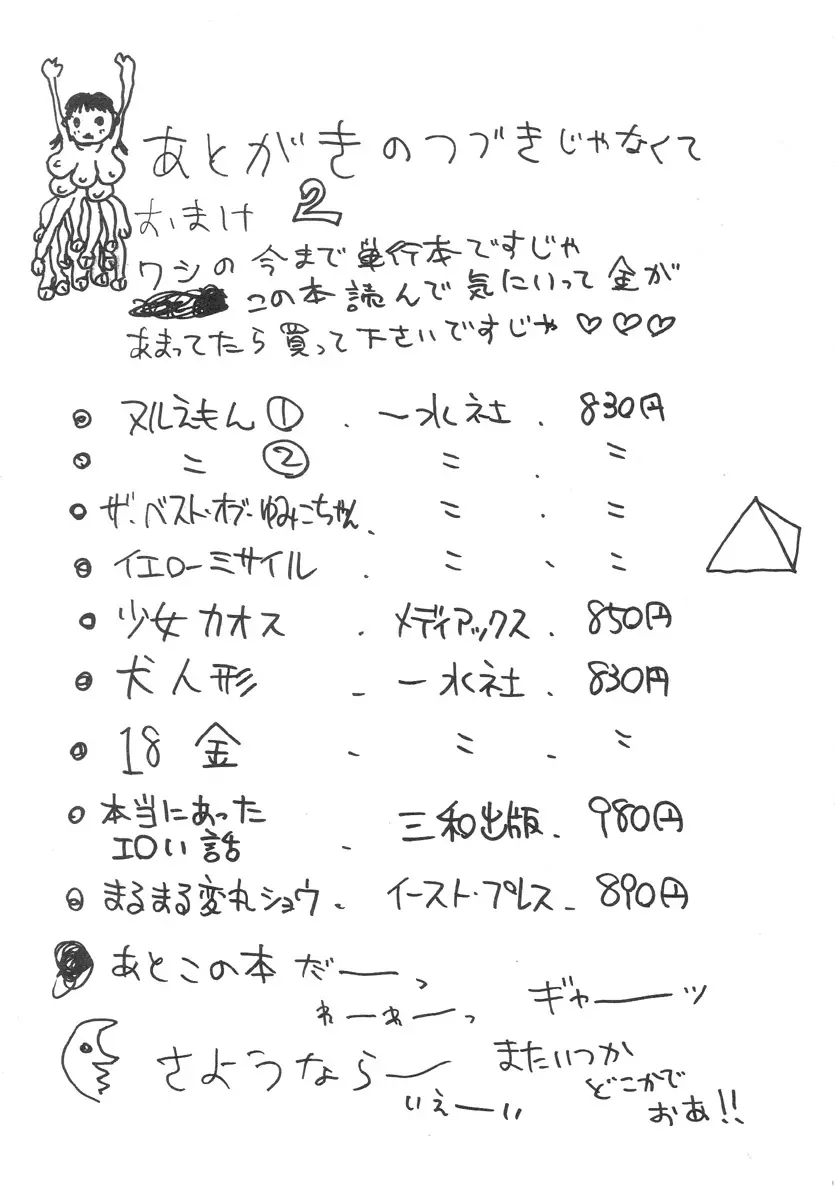 あとがきのつづきじゃなくて
おまけ 2
ワシの今まで単行本ですじゃ
この本読んで気にいって金が
あまってたら買って下さいですじゃ♡♡♡
ヌルえもん① . 一水社 . 830円
〃 ② 〃 . 〃
ザ・ベスト・オブ・ゆみこちゃん . 〃 . 〃
イエローミサイル . 〃 . 〃
少女カオス . メディアックス . 850円
犬人形 . 一水社 . 830円
18金 . 〃 . 〃
本当にあった
エロい話 . 三和出版 . 980円
まるまる変丸ショウ . イースト・プレス . 890円
あとこの本だーっ
わーわーっ
ギャーッ
さようならー
いえーい
またいつか
どこかで
おあ!!